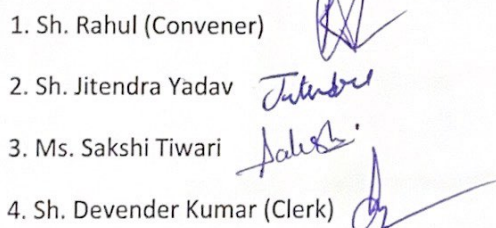 1. Sh. Rahul (Convener)
2. Sh. Jitendra Yadav Jitendra
3. Ms. Sakshi Tiwari Sakshi
4. Sh. Devender Kumar (Clerk)